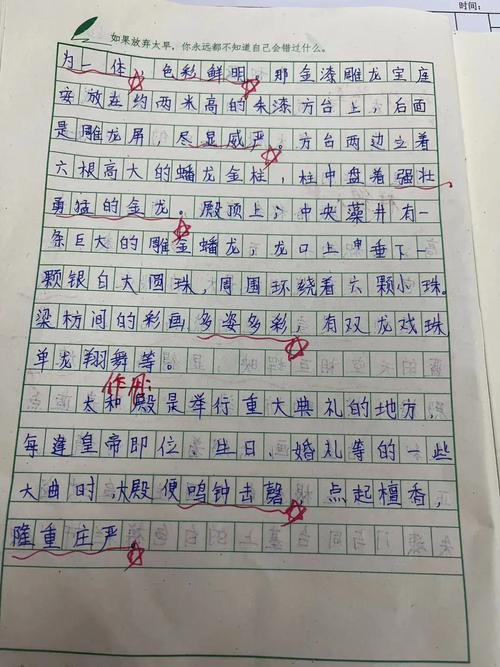 时间:
如果放弃太早，你永远都不知道自己会错过什么。
为一体，色彩鲜明。那金漆雕龙宝座
安放在约两米高的朱漆方台上，后面
是雕龙屏，尽显威严。方台两边立着
六根高大的蟠龙金柱，柱中盘着强壮
勇猛的金龙。殿顶上；中央藻井有一
条巨大的雕金蟠龙，龙口上中垂下一
颗银白大圆珠，周围环绕着六颗小珠。
梁枋间的彩画多姿多彩，有双龙戏珠
单龙翔舞等。
作用:
太和殿是举行重大典礼的地方，
每逢皇帝即位、生日、婚礼等的一些
大曲时，大殿便鸣钟击磬，点起檀香，
隆重庄严。